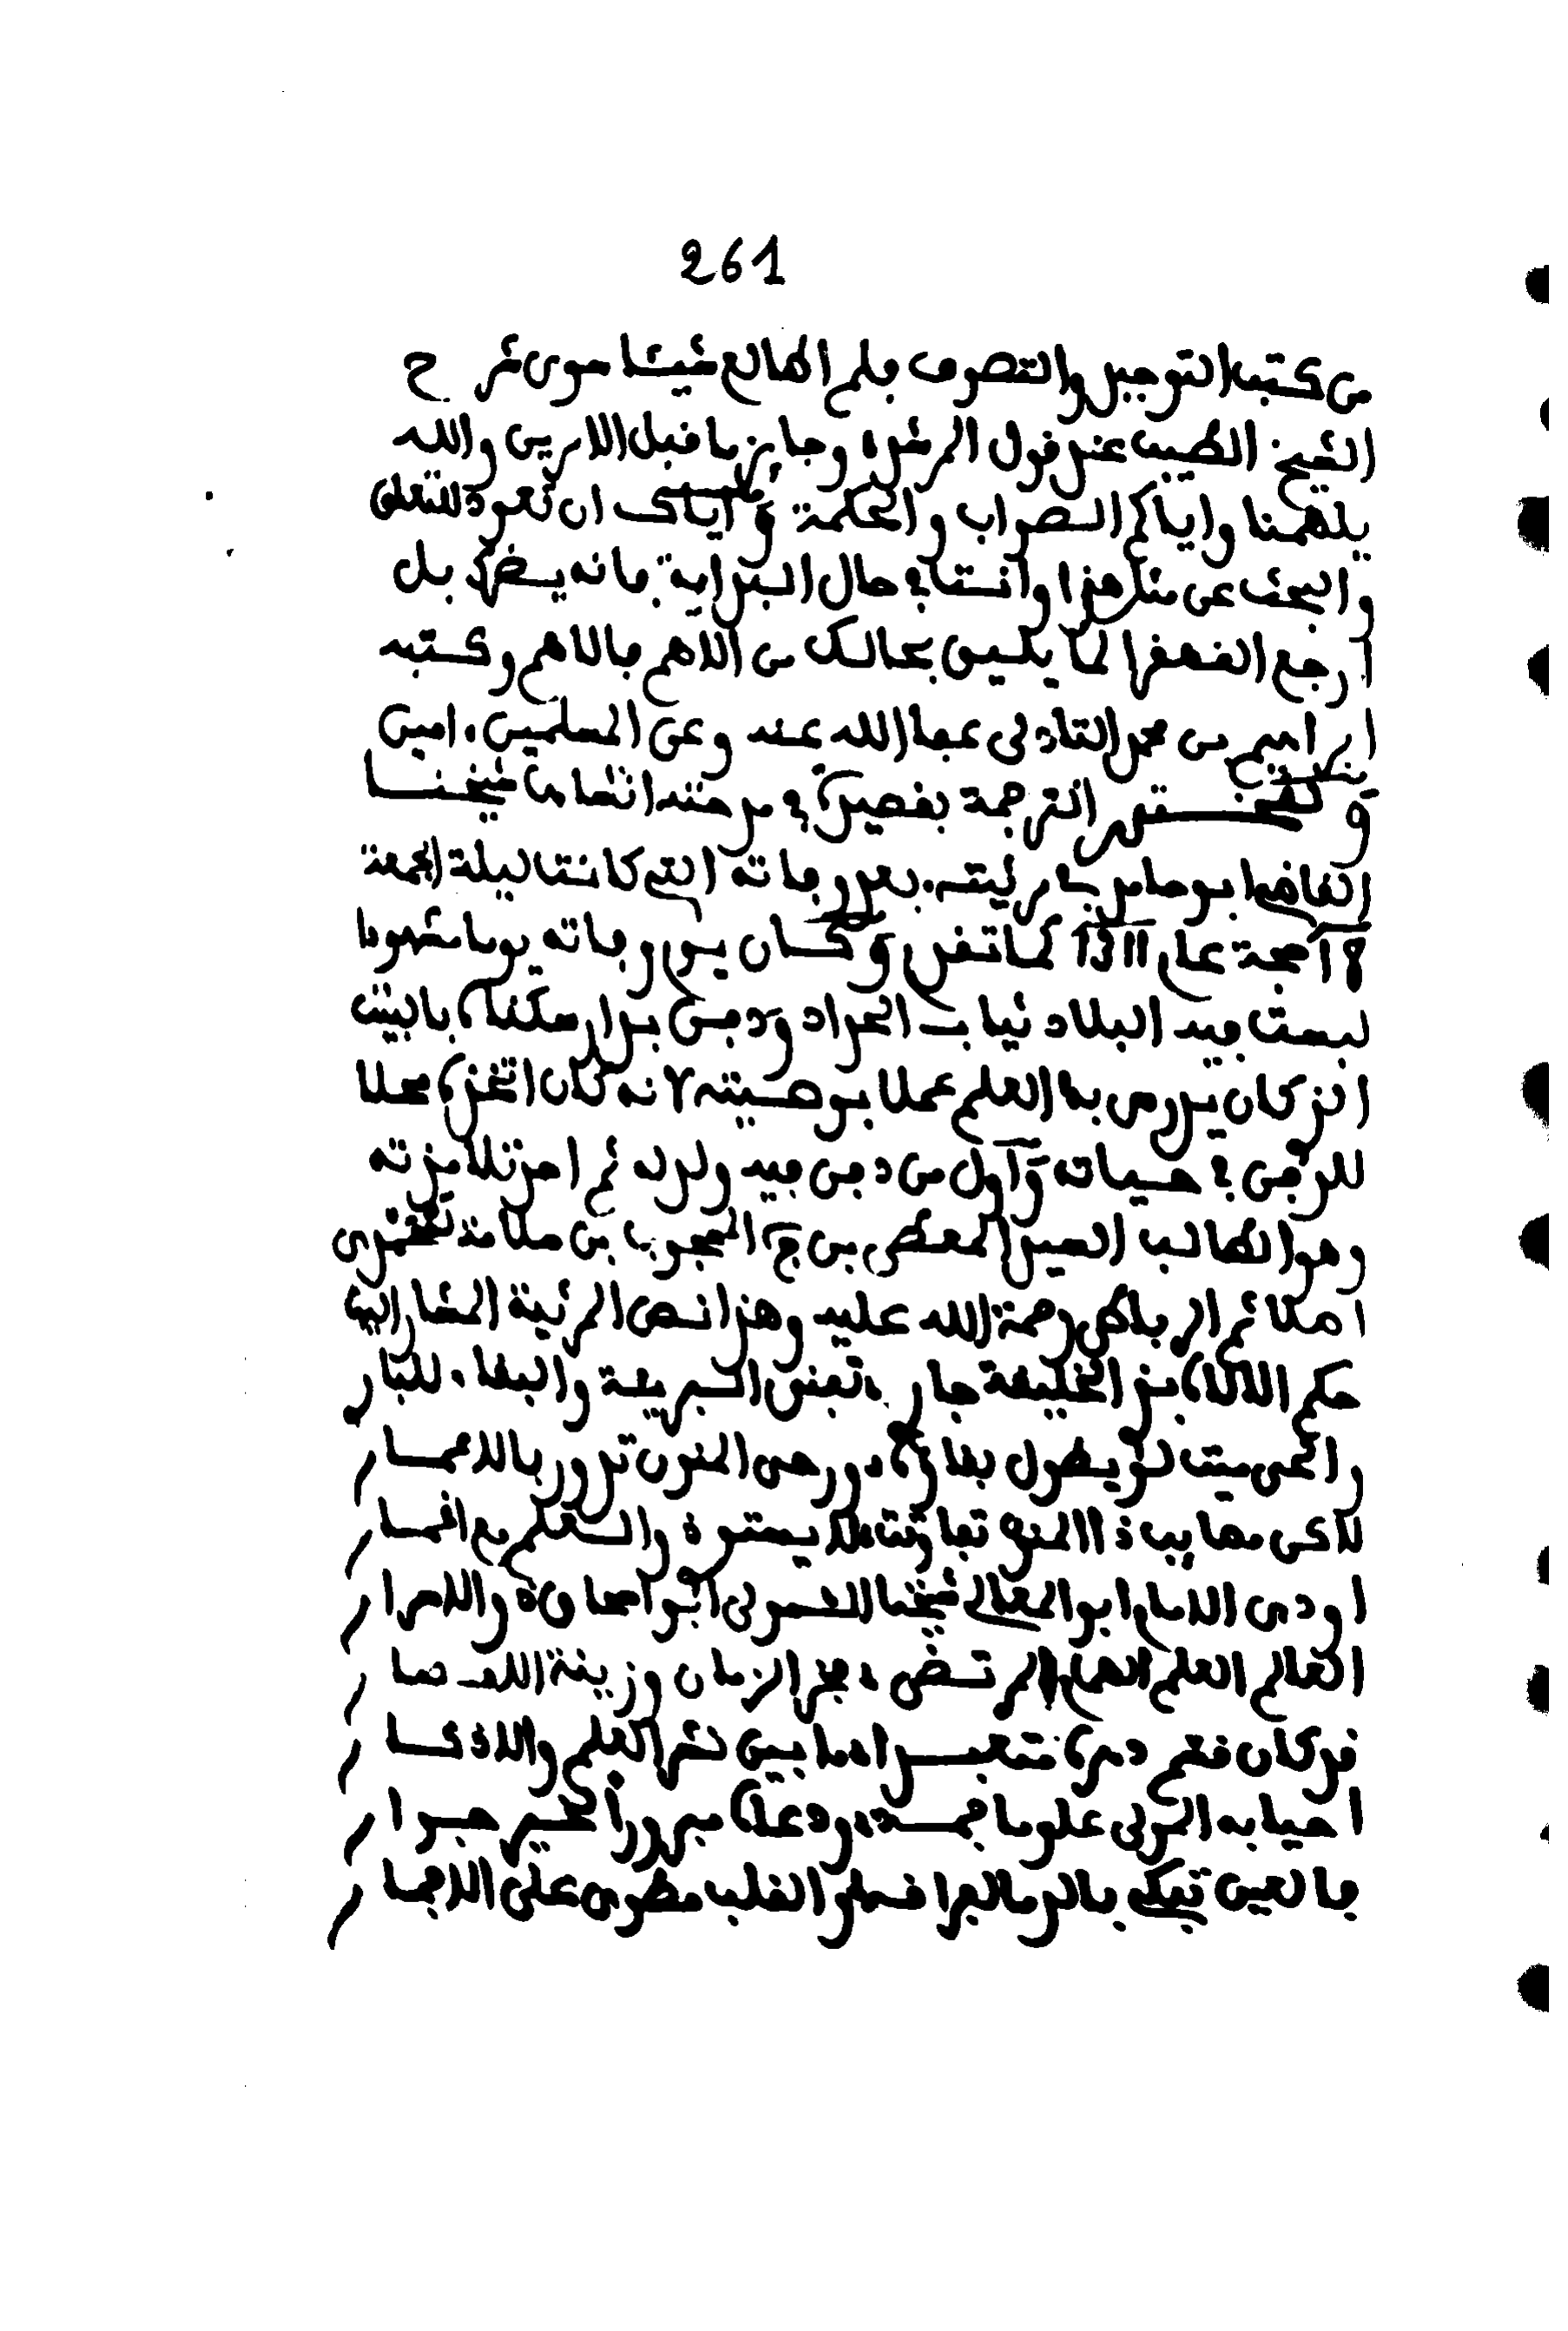 261
من كتب التوحيد والتصوف فلم اطالع شيئا سوى شرح
الشيخ الطيب عند قول المرشد وجاز ما قبل الامرين والله
يلهمنا واياكم الصواب والحكمة واياك ان تعود للتعلق
والبحث عن مثل هذا وانت في حال البداية فانه يضرك بل
ارجع القهقرا لما يليق بحالك من الاهم فالاهم وكتبه
ابراهيم بن محمد التادلى عفا الله عنه وعن المسلمين امين
ولنختم الترجمة بقصيدة في مرثيته انشاها شيخنا
القاضي ابو حامد بعد وفاته التي كانت ليلة الجمعة
18 حجة عام 1311 كما تقدم وكان يوم وفاته يوما مشهودا
لبست فيه البلاد ثياب الحداد ودفن بدار سكناه بالبيت
الذي كان يدرس بها العلم عملا بوصيته لانه كان اتخذه محلا
للدفن في حياته واول من دفن فيه ولده ثم احد تلامذته
وهو الطالب السيد المعطى بن ج المحجوب بن سلامة
الرباطي رحمة الله عليه وهذا نص المرثية المشار اليها
حكم الاله بذى الخليفة جار تفنى البرية والبقاء للبار
والحى ميت لو يطول بقاؤه ورحى المنون تدور بالاعمار
لاكن مصايب ذا المنون تفاوتت لا يستوى والعلم مع اغمار
اودى الامام ابو المعالي شيخنا ابو اسحاق والاسرار
العالم العلم الهمام المرتضى فخر الزمان وزينة الامصار
قد كان قصر دهره متعبدا ما بين نشر العلم والاذكار
احيا به المولى علوما جمة ودعاه
فالعين تبكي بالدما لفراقه والقلب مطوى على الاجمار